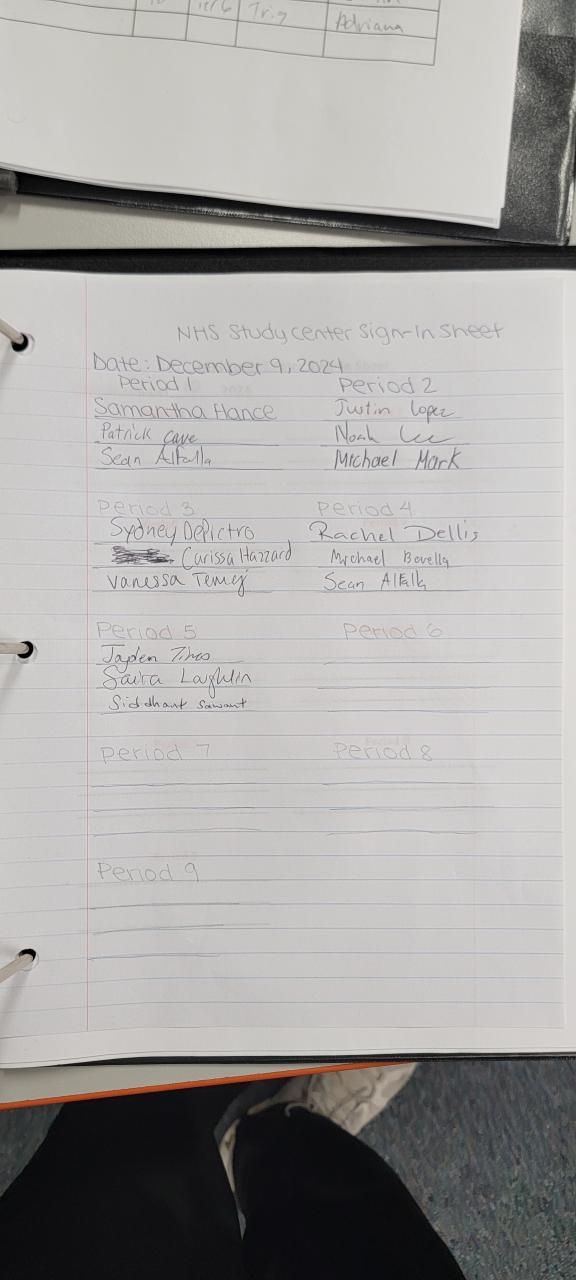 10/6 Trig Adriana
NHS Study center Sign-In Sheet
Date: December 9, 2024
Period 1 Period 2
Samantha Hance Justin Lopez
Patrick Cave Noah Lee
Sean Alfalla Michael Mark
Period 3 Period 4
Sydney DePietro Rachel Dellis
Carissa Hazzard Michael Bovella
Vanessa Sean Alfalla
Period 5 Period 6
Jayden
Saira Laughlin
Siddhant Sawant
Period 7 Period 8
Period 9